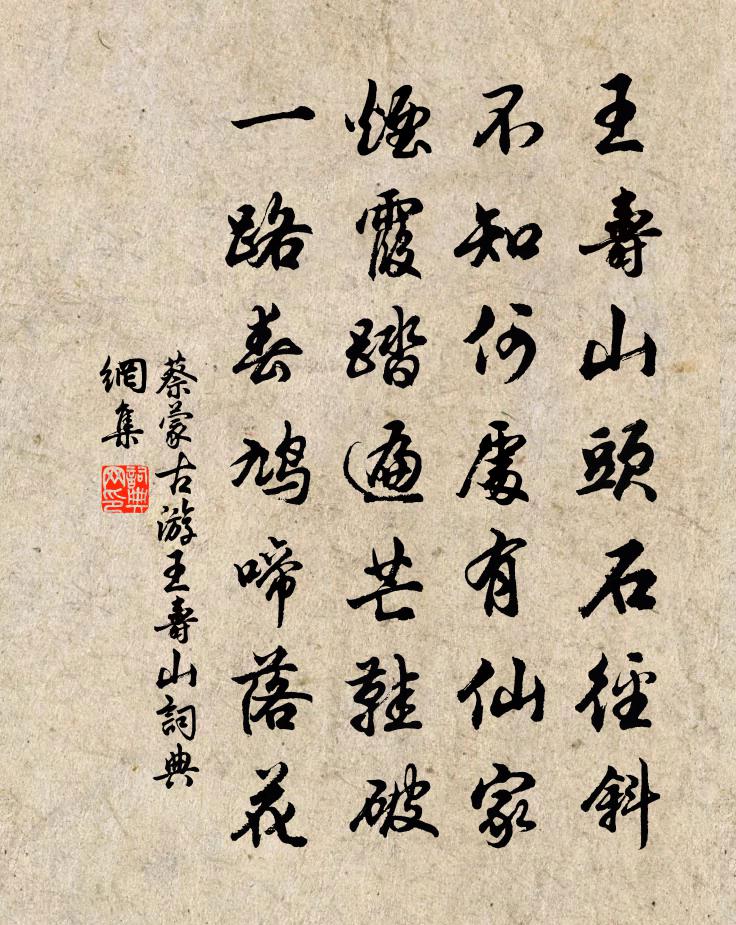 王壽山頭石徑斜
不知何處有仙家
煙霞踏遍芒鞋破
一路春鳩啼落花
蔡蒙古游王壽山詞典
網集
詞典
网印